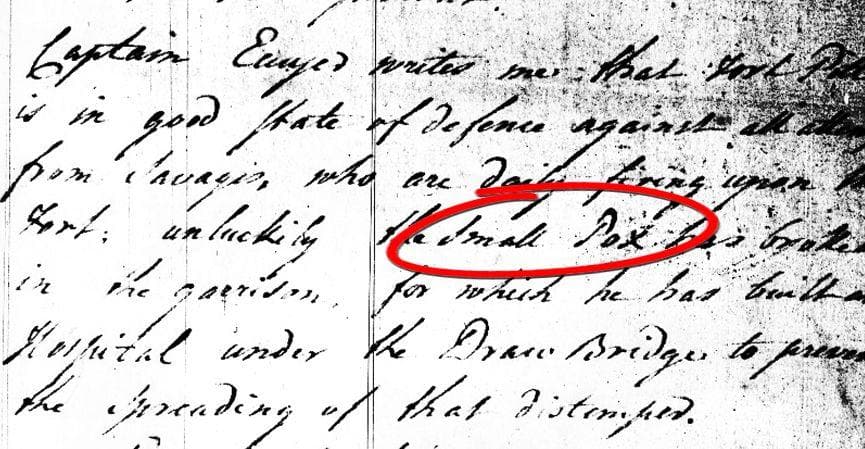 Captain Ecuyer writes me that Fort
is in good State of defence against all
from Savages, who are daily firing upon
Fort; unluckily the Small Pox has broke
in the garrison, for which he has built
Hospital under the Draw Bridge to
the spreading of that distemper.